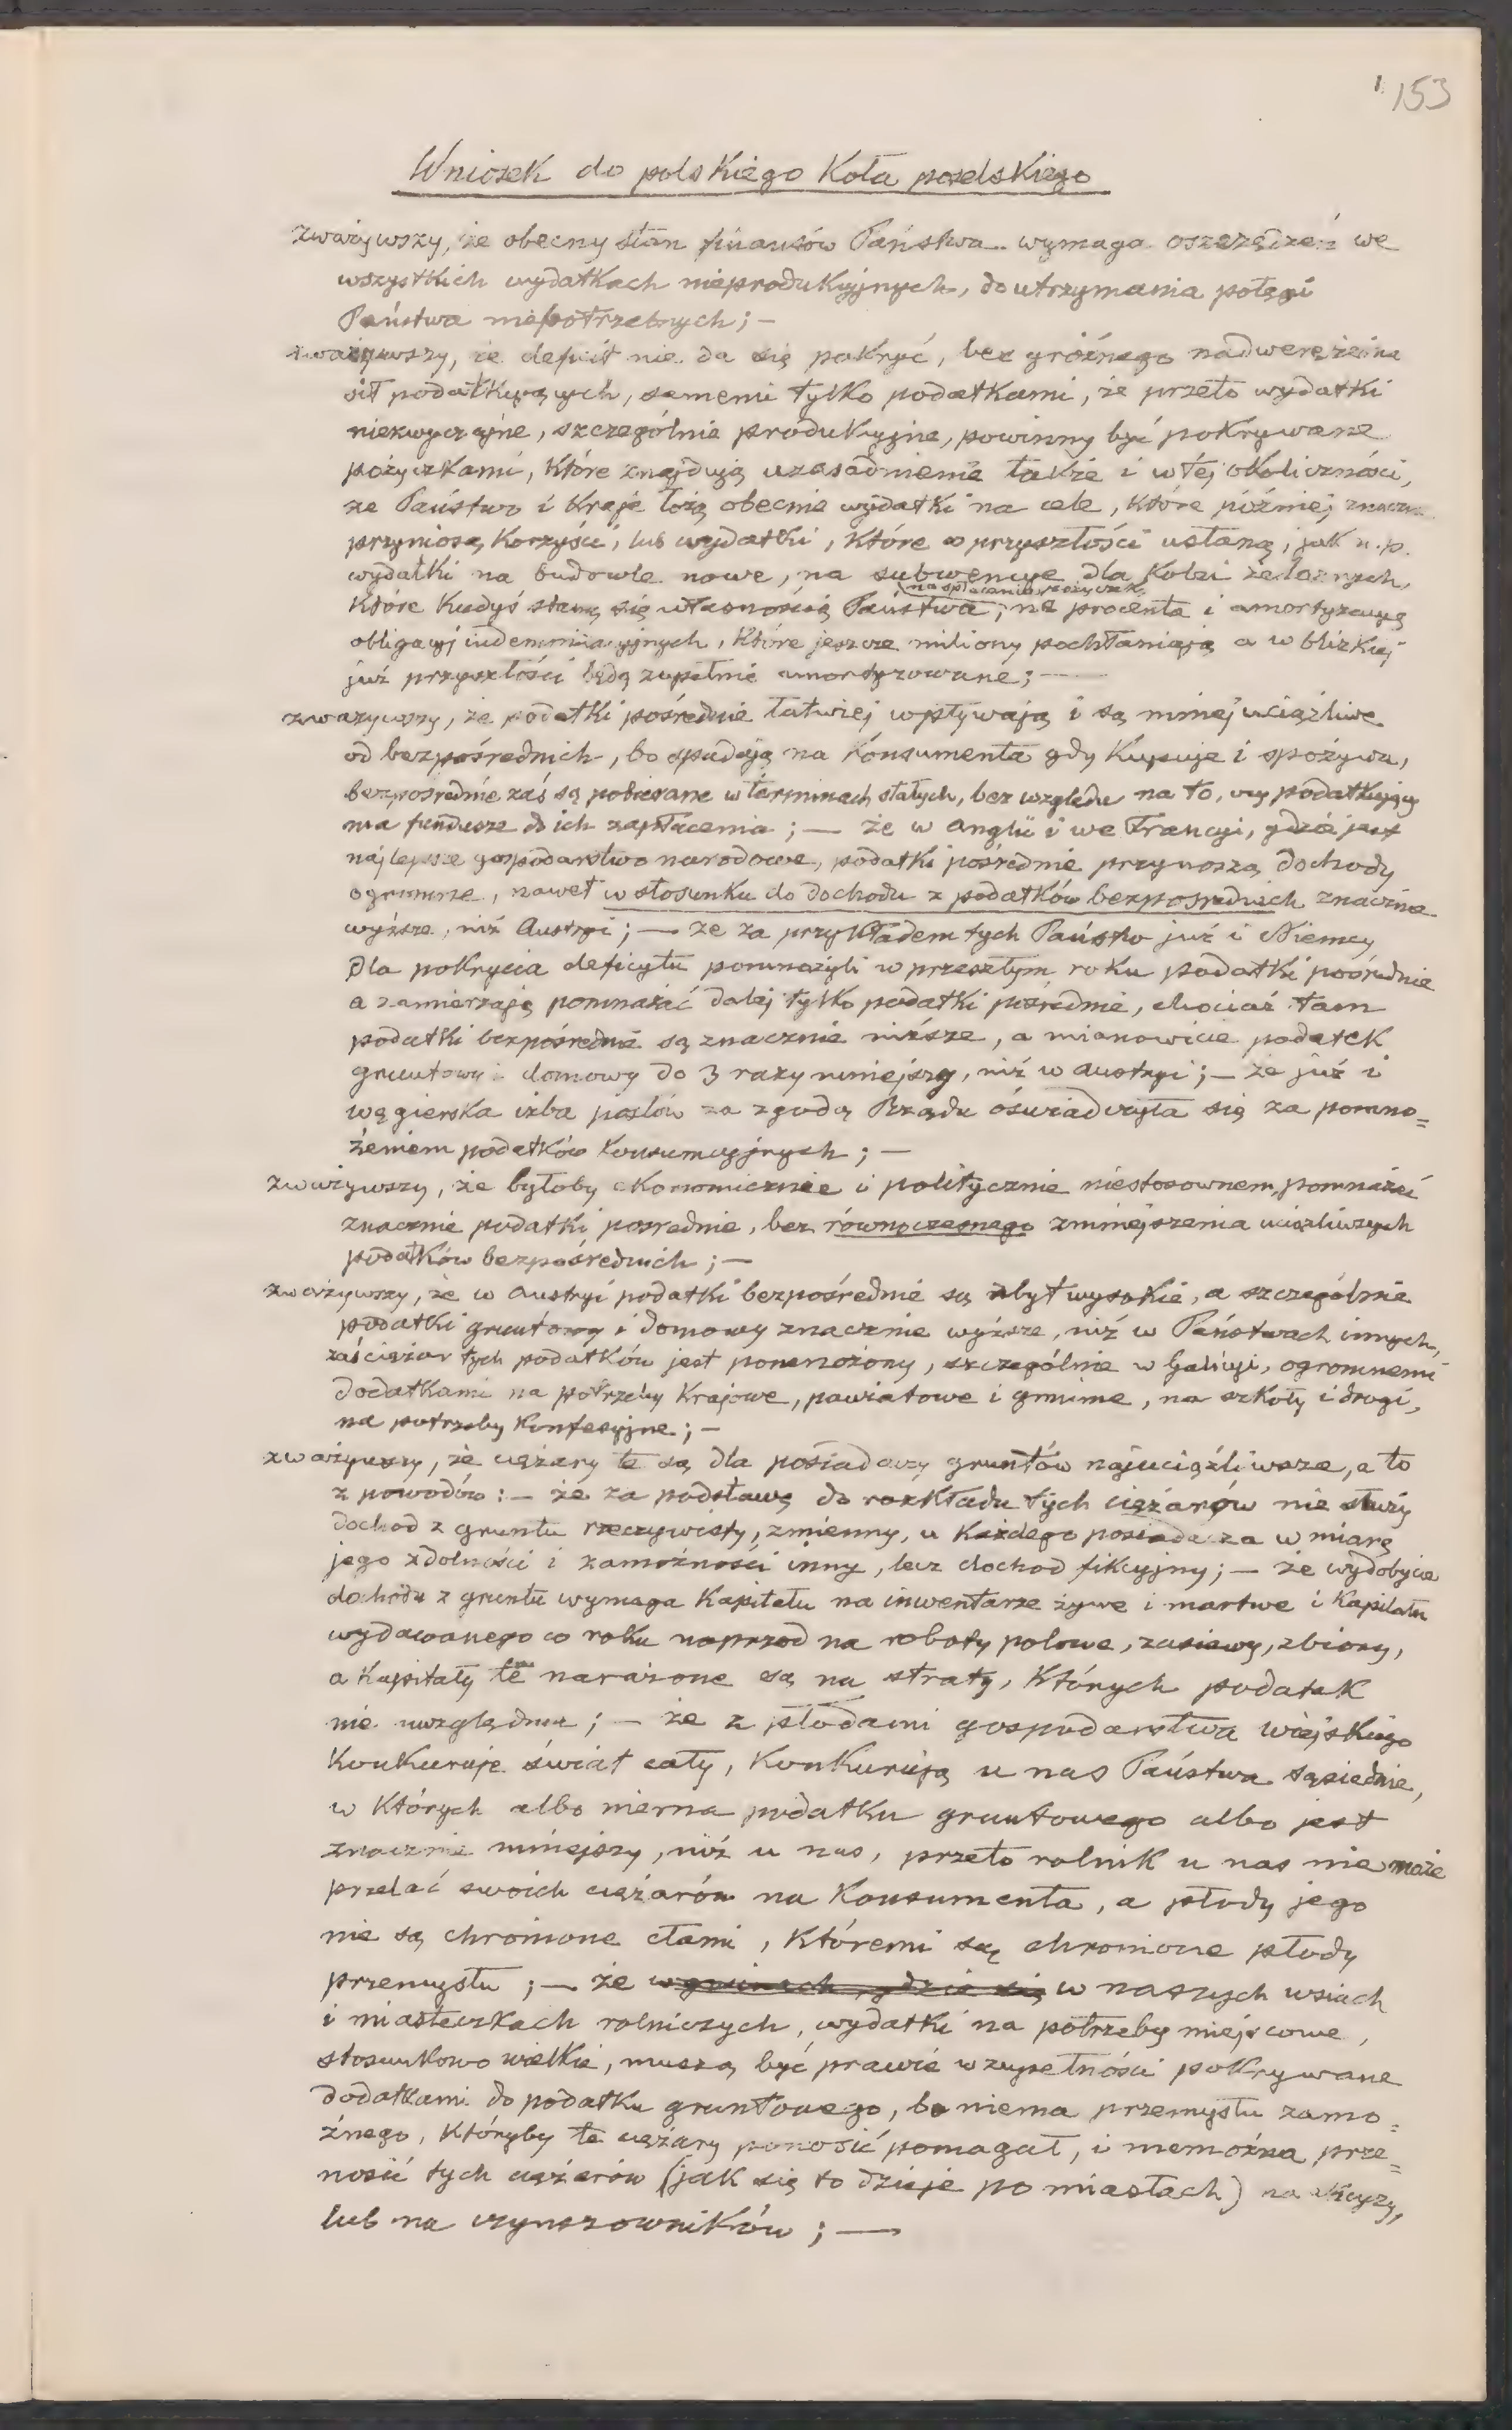 153
Wniosek do polskiego Koła poselskiego
zważywszy, że obecny stan finansów Państwa wymaga oszczędzeń we
wszystkich wydatkach nieprodukcyjnych, do utrzymania potęgi
Państwa niepotrzebnych; —
zważywszy, że deficit nie da się pokryć, bez groźnego nadwerężenia
sił podatkujących, samemi tylko podatkami, że przeto wydatki
niezwyczajne, szczególnie produkcyjne, powinny być pokrywane
pożyczkami, które znajdują uzasadnienie także i w tej okoliczności,
że Państwo i Kraje łożą obecnie wydatki na cele, które później znaczne
przyniosą korzyści, lub wydatki, które w przyszłości ustaną, jak n.p.
wydatki na budowle nowe, na subwencye dla kolei żelaznych,
na spłacenie pożyczek
które kiedyś staną się własnością Państwa, na procenta i amortyzacyą
obligacyj indemnizacyjnych, które jeszcze miliony pochłaniają a w blizkiej
już przyszłości będą zupełnie amortyzowane; —
zważywszy, że podatki pośrednie łatwiej wpływają i są mniej uciążliwe
od bezpośrednich, bo spadają na konsumenta gdy kupuje i spożywa,
bezpośrednie zaś są pobierane w terminach stałych, bez względu na to, czy podatkujący
ma fundusze do ich zapłacenia; — że w Anglii i we Francyi, gdzie jest
najlepsze gospodarstwo narodowe, podatki pośrednie przynoszą dochody
ogromne, nawet w stosunku do dochodu z podatków bezpośrednich znacznie
wyższe, niż Austryi; — że za przykładem tych Państw już i Niemcy
dla pokrycia deficytu pomnożyli w przeszłym roku podatki pośrednie
a zamierzają pomnażać dalej tylko podatki pośrednie, chociaż tam
podatki bezpośrednie są znacznie niższe, a mianowicie podatek
gruntowy i domowy do 3 razy mniejszy, niż w Austryi; — że już i
węgierska izba posłów za zgodą Rządu oświadczyła się za pomno=
żeniem podatków konsumcyjnych; —
zważywszy, że byłoby ekonomicznie i politycznie niestosownem, pomnażać
znacznie podatki pośrednie, bez równoczesnego zmniejszenia uciążliwszych
podatków bezpośrednich; —
zważywszy, że w Austryi podatki bezpośrednie są zbyt wysokie, a szczególnie
podatki gruntowy i domowy znacznie wyższe, niż w Państwach innych,
zaś ciężar tych podatków jest pomnożony, szczególnie w Galicyi, ogromnemi
dodatkami na potrzeby Krajowe, powiatowe i gminne, na szkoły i drogi,
na potrzeby konfesyjne; —
zważywszy, że ciężary te są dla posiadaczy gruntów najuciążliwsze, a to
z powodów: — że za podstawę do rozkładu tych ciężarów nie służy
dochod z gruntu rzeczywisty, zmienny, u każdego posiadacza w miarę
jego zdolności i zamożności inny, lecz dochod fikcyjny; — że wydobycie
dochodu z gruntu wymaga Kapitału na inwentarze żywe i martwe i Kapitału
wydawanego co roku naprzod na roboty polowe, zasiewy, zbiory,
a Kapitały te narażone są na straty, których podatek
nie uwzględnia; — że z płodami gospodarstwa wiejskiego
konkuruje świat cały, konkurują u nas Państwa sąsiednie,
w których albo niema podatku gruntowego albo jest
znacznie mniejszy, niż u nas, przeto rolnik u nas nie może
przelać swoich ciężarów na konsumenta, a płody jego
nie są chronione cłami, któremi są chronione płody
przemysłu; — że w gminach, gdzie się w naszych wsiach
i miasteczkach rolniczych, wydatki na potrzeby miejscowe,
stosunkowo wielkie, muszą być prawie w zupełności pokrywane
dodatkami do podatku gruntowego, bo niema przemysłu zamo=
żnego, któryby te ciężary ponosić pomagał, i niemożna prze=
nosić tych ciężarów (jak się to dzieje po miastach) na
lub na czynszowników; —